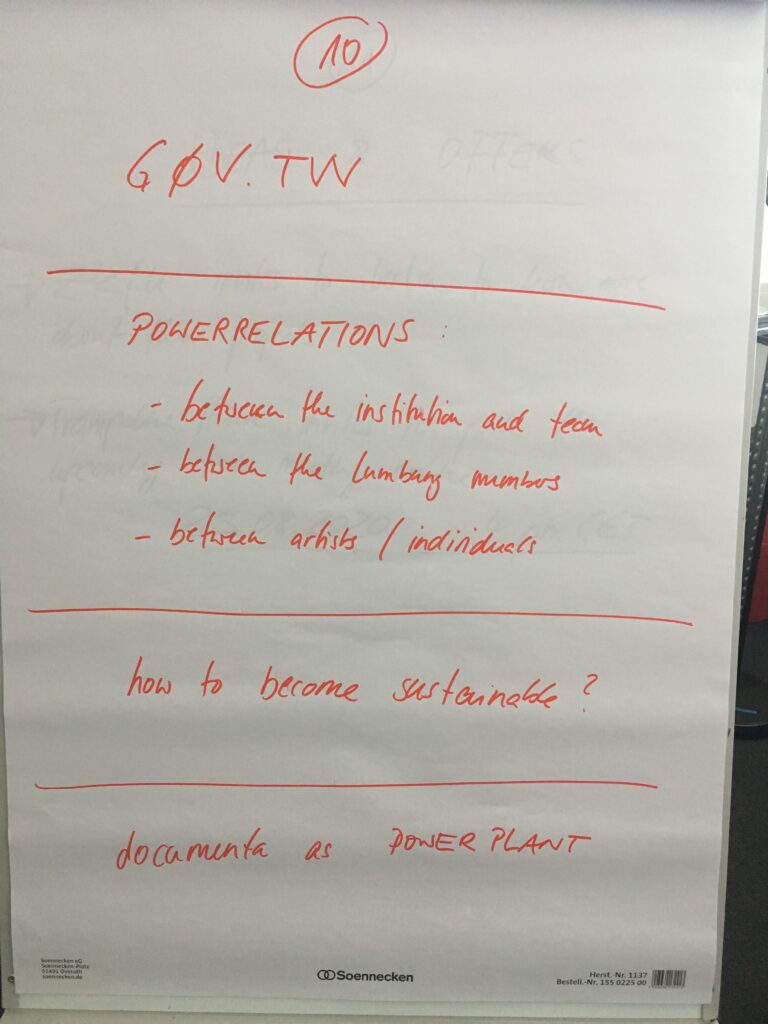 10
GØV.TW
POWERRELATIONS :
- between the institution and team
- between the lumbung members
- between artists / individuals
how to become sustainable ?
documenta as POWER PLANT
Soennecken eG
Soennecken-Platz
51491 Overath
soennecken.de
Soennecken
Herst.-Nr. 1137
Bestell.-Nr. 155 0225 00